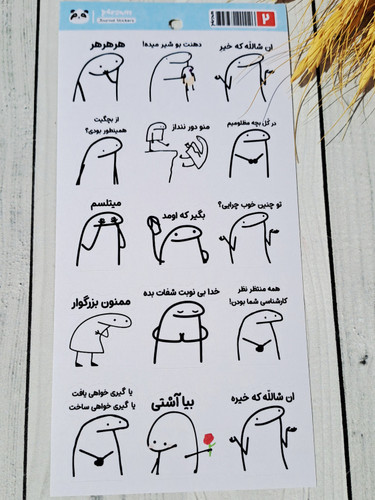 Round Stickers
۲
ان شالله که خیر
دهنت بو شیر میده!
هرهرهر
در کُل بچه مظلومیم
منو دور ننداز
از بچگیت
همینطور بودی؟
تو چنین خوب چرایی؟
بگیر که اومد
میتلسم
همه منتظر نظر
کارشناسی شما بودن!
خدا بی نوبت شفات بده
ممنون بزرگوار
ان شالله که خیره
بیا آشتی
یا گیری خواهی یافت
یا گیری خواهی ساخت